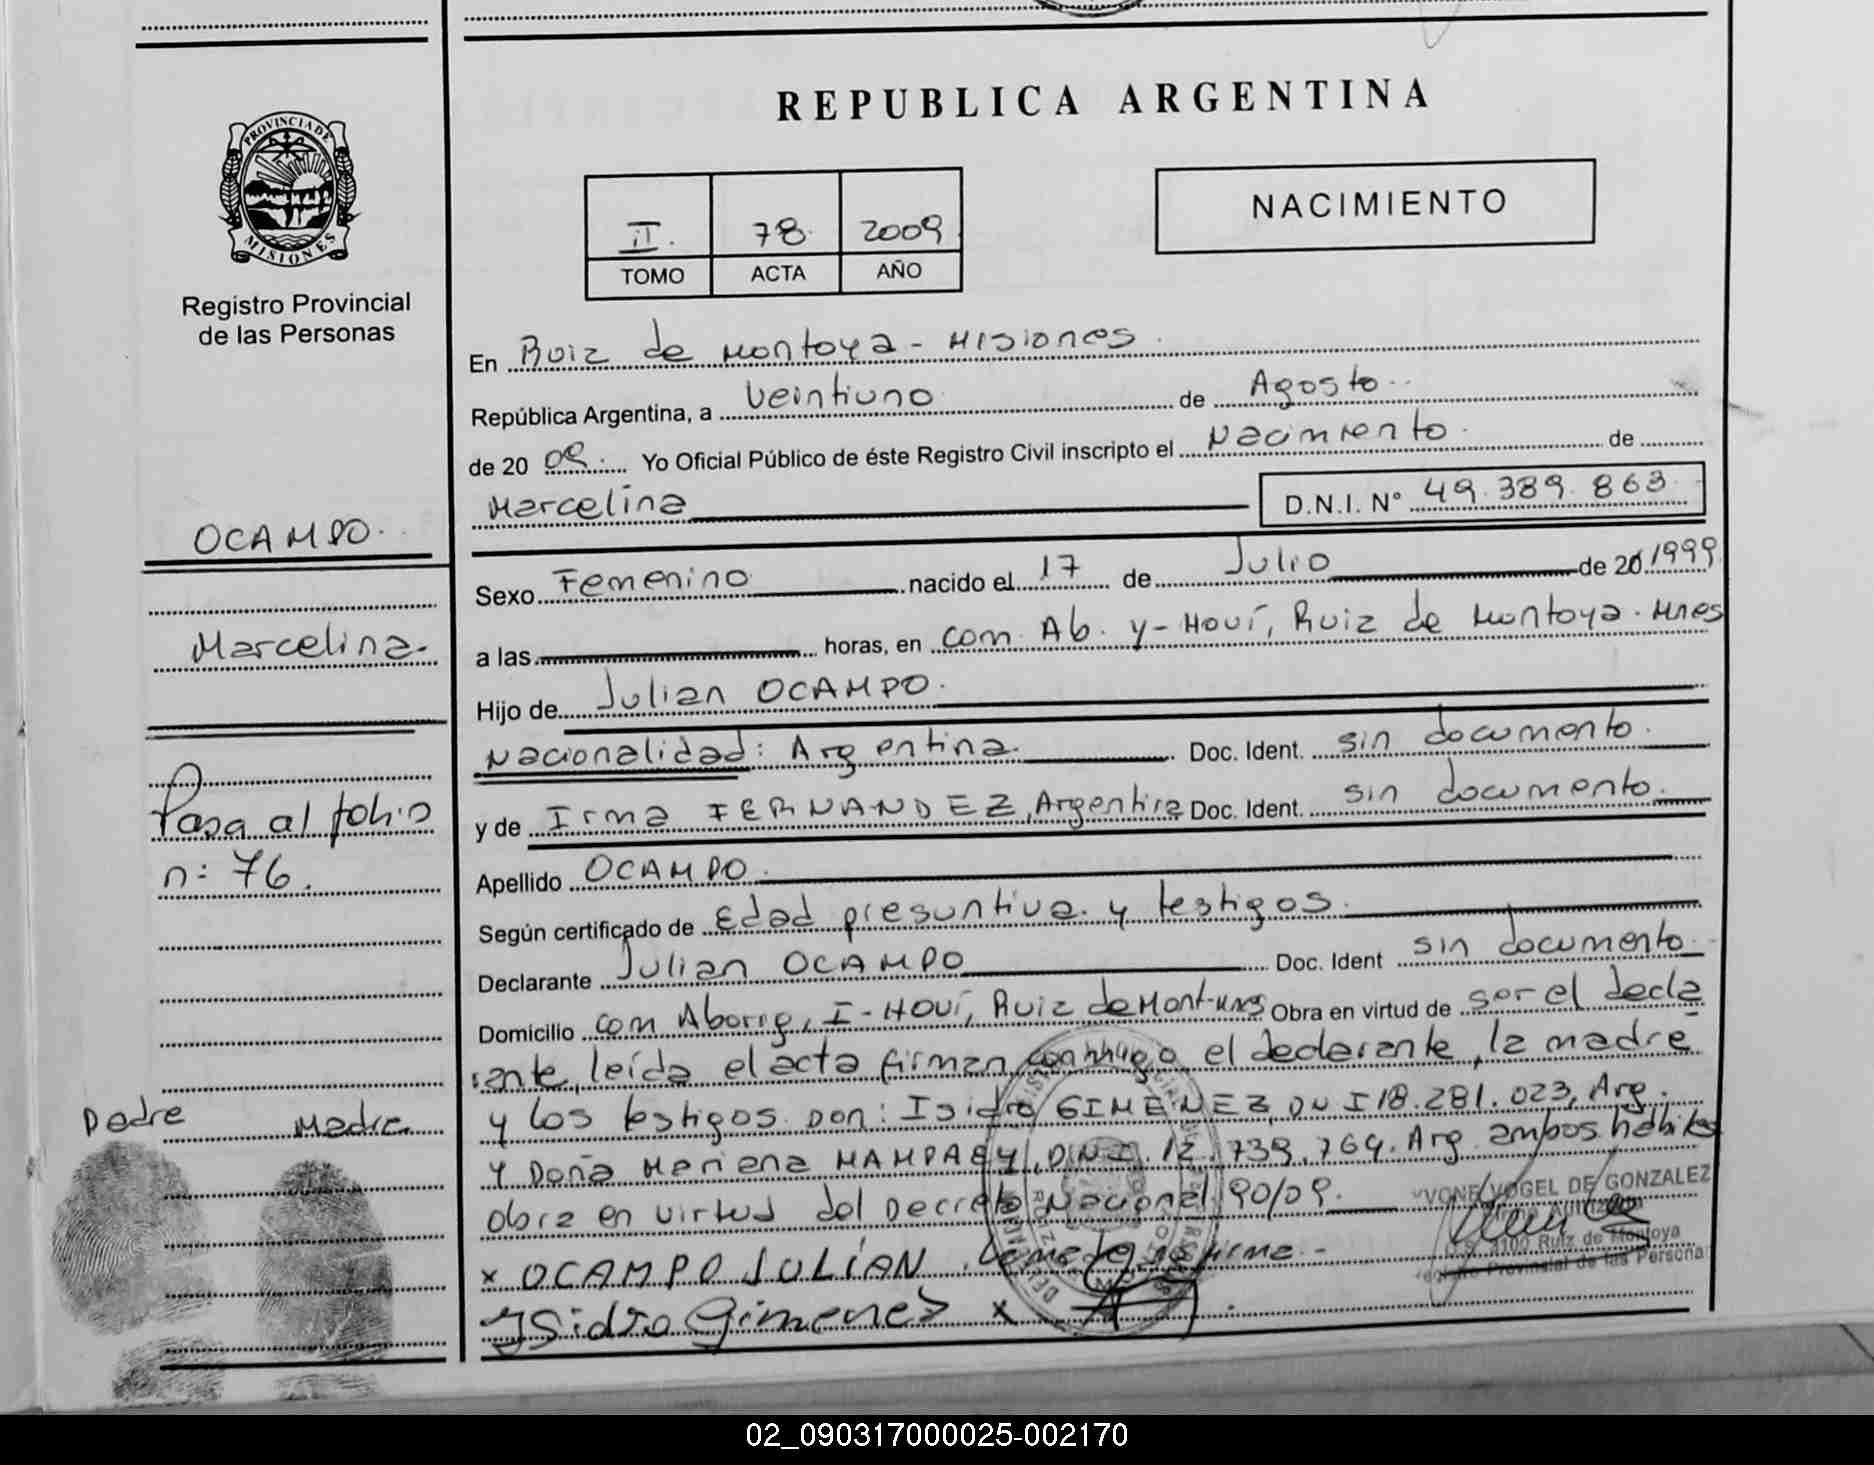 REPUBLICA ARGENTINA
PROVINCIA DE
MISIONES
Registro Provincial
de las Personas
II. 78. 2009
TOMO ACTA AÑO
NACIMIENTO
En Ruiz de Montoya - Misiones.
República Argentina, a veintiuno de Agosto.
de 20 09. Yo Oficial Público de éste Registro Civil inscripto el Nacimiento. de
Marcelina D.N.I. N° 49.389.863
Sexo Femenino nacido el 17 de Julio de 20 1999
a las horas, en com. Ab. Y-Hoví, Ruiz de Montoya. Mnes
Hijo de Julian OCAMPO.
Nacionalidad: Argentina. Doc. Ident. sin documento.
y de Irma FERNANDEZ, Argentina Doc. Ident. sin documento.
Apellido OCAMPO.
Según certificado de Edad presuntiva y testigos.
Declarante Julian OCAMPO Doc. Ident sin documento.
Domicilio com Aborig, I-Hoví, Ruiz de Mont-Mnes Obra en virtud de ser el decla
rante, leída el acta firman conmigo el declarante, la madre
y los testigos Don: Isidro GIMENEZ, DNI 18.281.023, Arg.
y Doña Mariana MAMPAEY, DNI. 12.739.764. Arg. ambos hábiles
obra en virtud del Decreto Nacional 90/09.
x OCAMPO JULIÁN. la no firma.-
Isidro Gimenez x
OCAMPO.
Marcelina.
Pasa al folio
n: 76.
Padre Madre
YVONE VOGEL DE GONZALEZ
4100 Ruiz de Montoya
Registro Provincial de las Persona
02_090317000025-002170